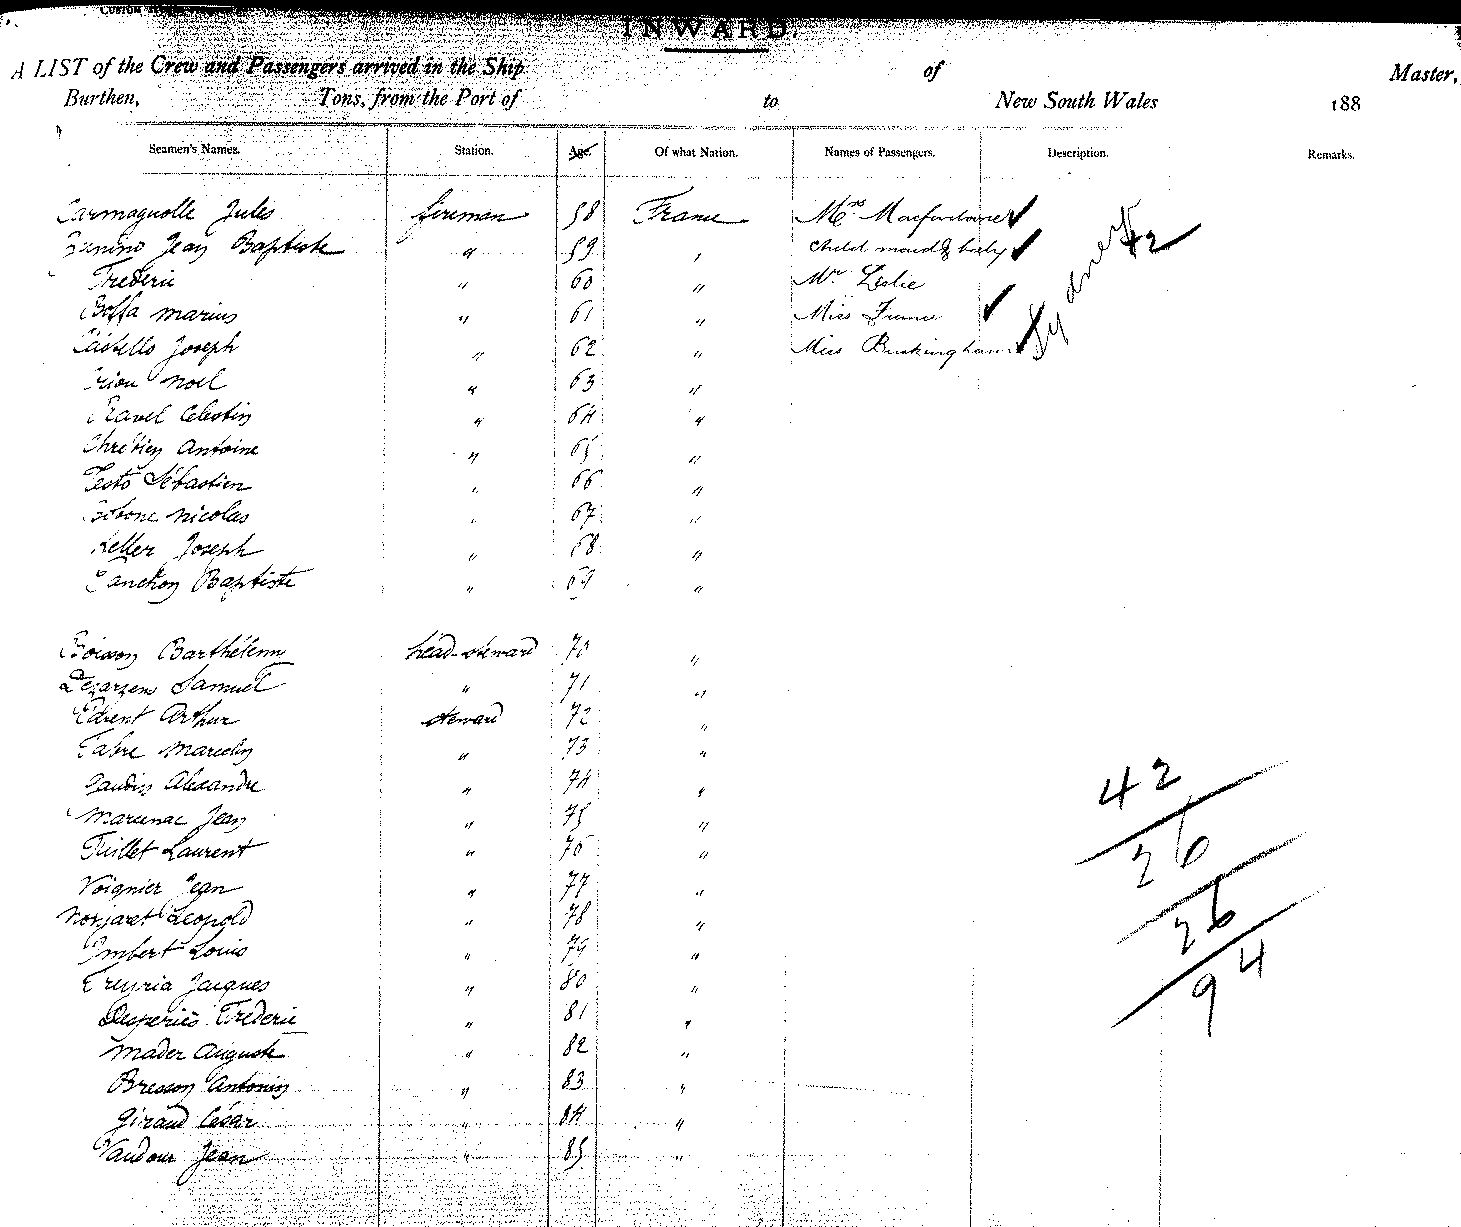 INWARD.
A LIST of the Crew and Passengers arrived in the Ship of Master,
Burthen, Tons, from the Port of to New South Wales 188
Seamen's Names. Station. Age. Of what Nation. Names of Passengers. Description. Remarks.
Carmagnolle Jules fireman 58 France Mrs Macfarlane ✓
Jean Baptiste " 59 " child maid & baby ✓ 42
Frederic " 60 " Mr. Leslie
Boffa Marius " 61 " Miss ✓ Sydney
Castello Joseph " 62 " Miss Buckingham ✓
Noel " 63 "
Ravel Celestin " 64 "
Chretien Antoine " 65 "
Testo Sébastien " 66 "
Nicolas " 67 "
Keller Joseph " 68 "
Baptiste " 69 "
Boisson Barthélemy head-steward 70 "
Dezarzens Samuel " 71 "
Arthur steward 72 "
Fabre Marcelin " 73 "
Gaudin Alexandre " 74 "
Marcenac Jean " 75 "
Laurent " 76 "
Voignier Jean " 77 "
Leopold " 78 "
Imbert Louis " 79 "
Jacques " 80 "
Frederic " 81 "
Mader Auguste " 82 "
Bresson Antonin " 83 "
Giraud César " 84 "
Vaudour Jean " 85 "
42
26
26
94